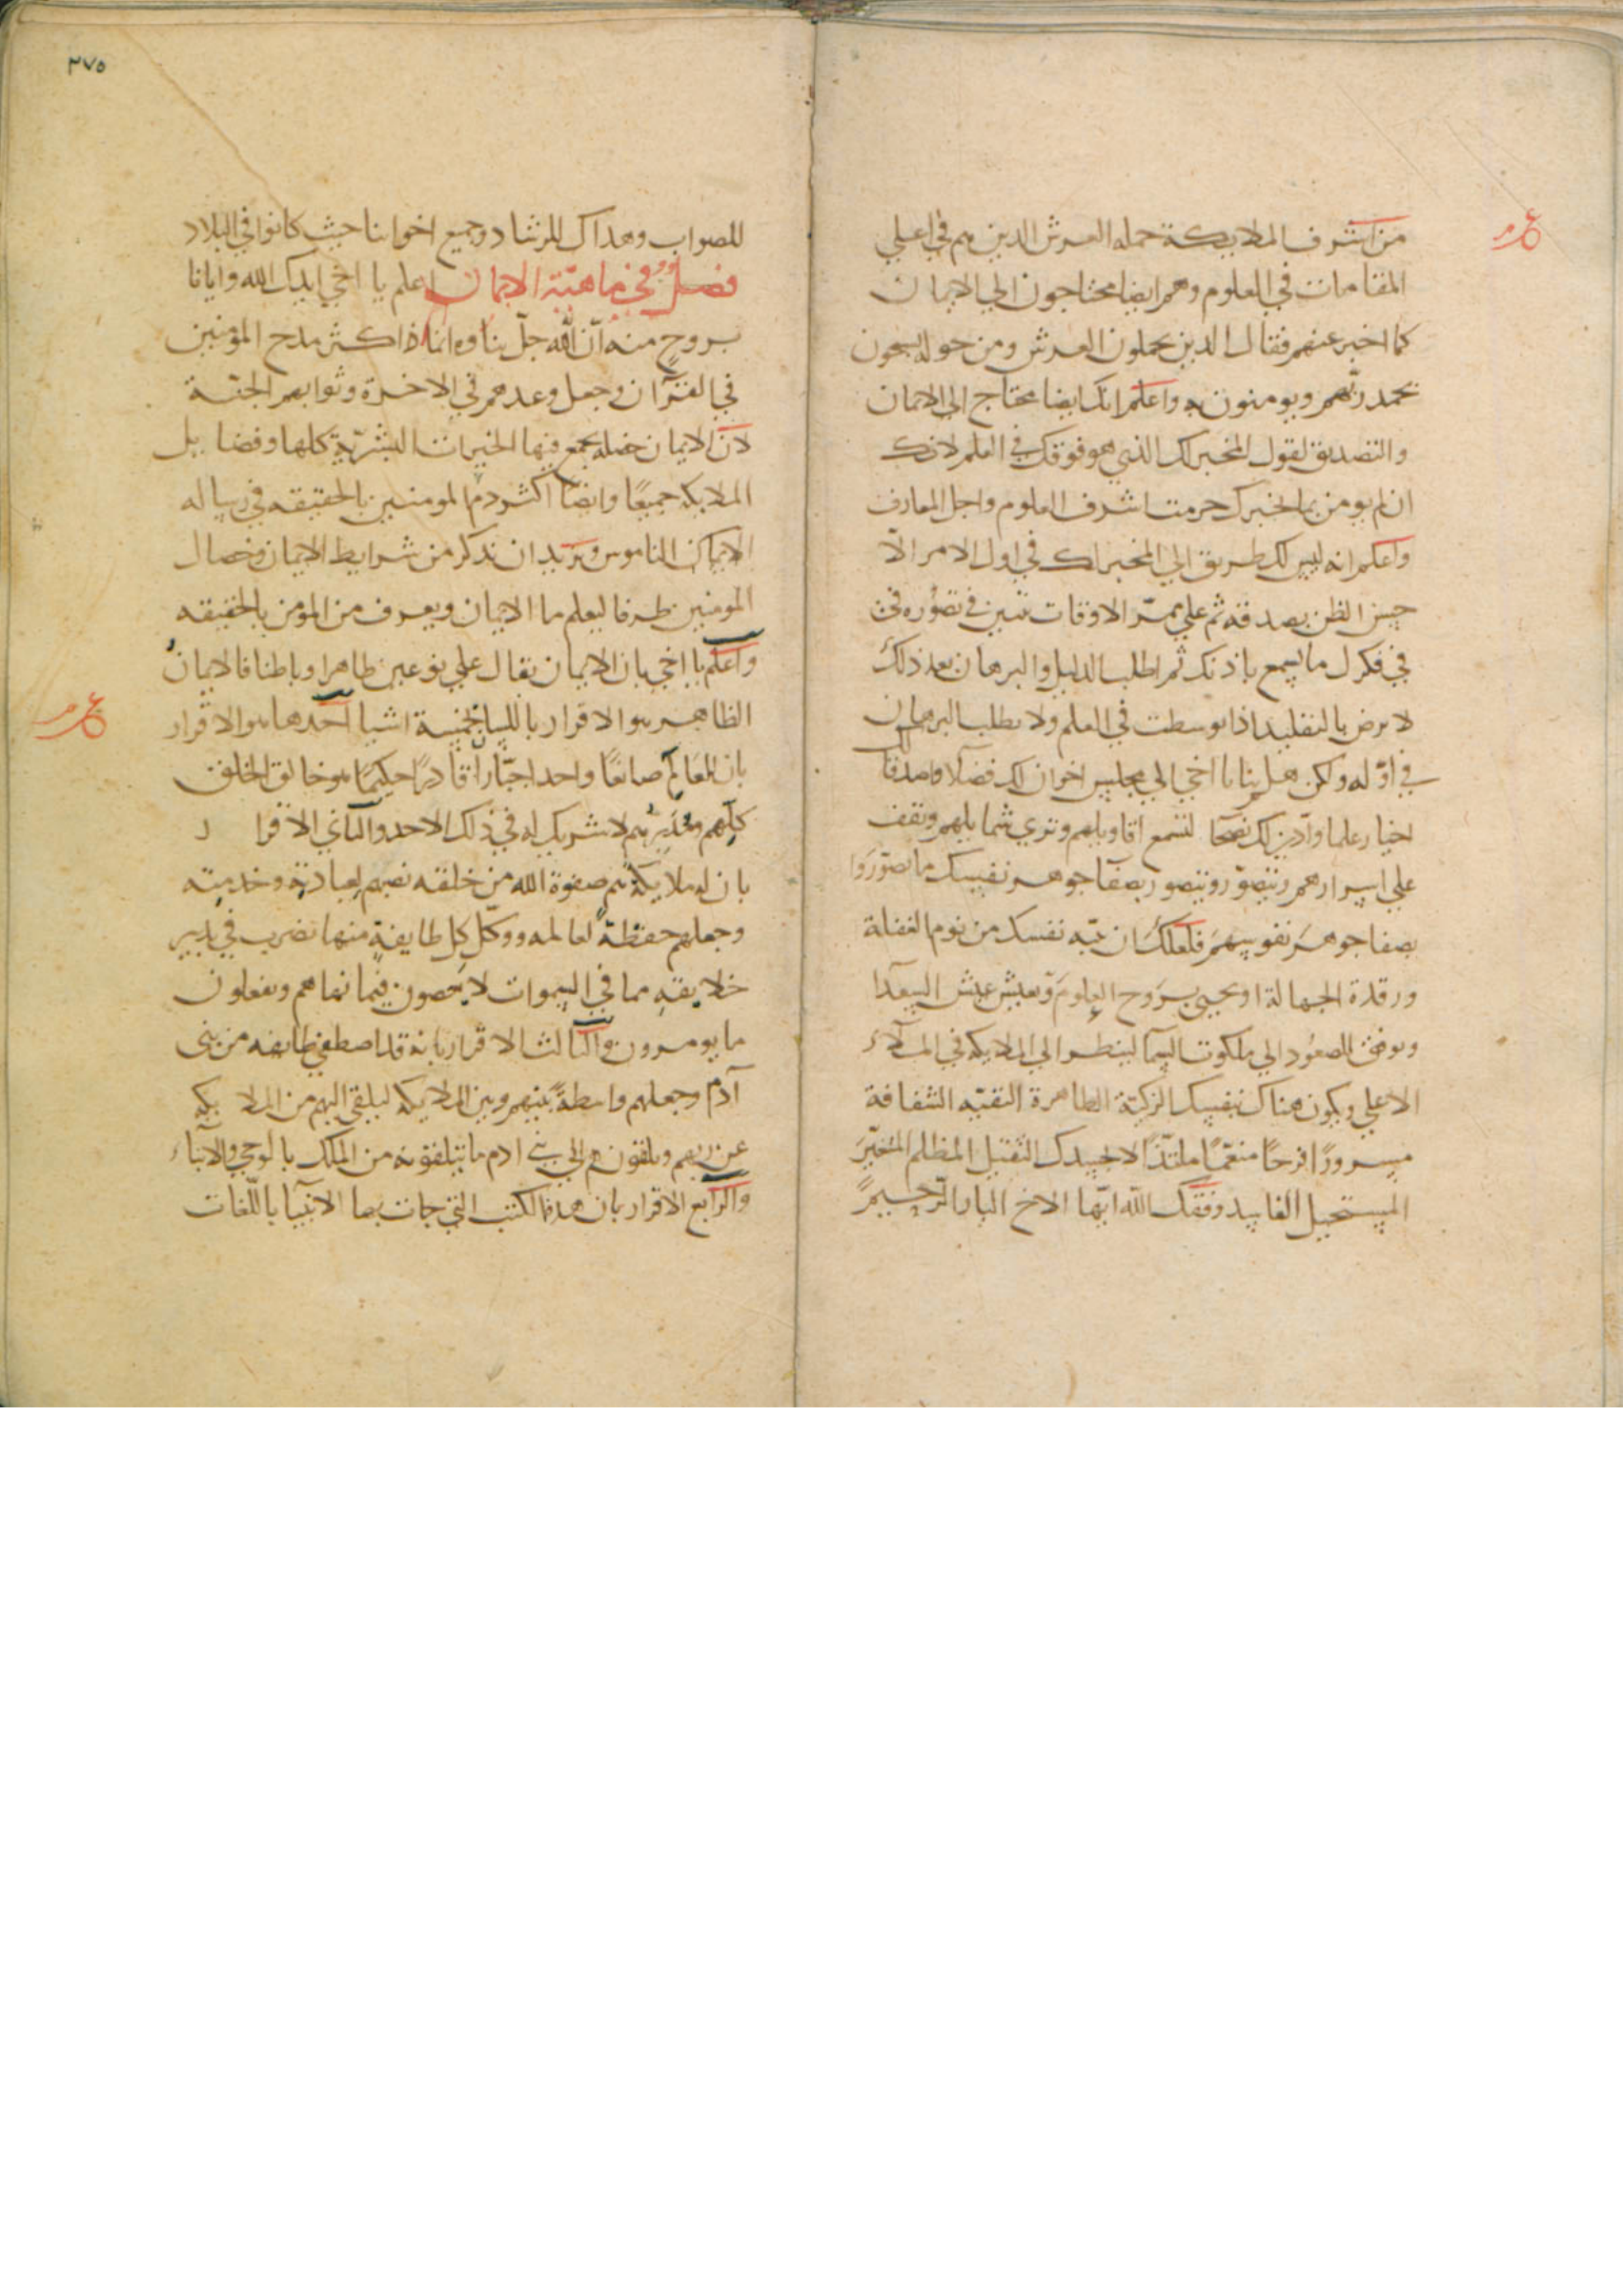 من اشرف الملايكة حمله العرش الدين هم في اعلي
المقامات في العلوم وهم ايضا محتاجون الي الايمان
كما اخبر عنهم فقال الدين يحملون العرش ومن حوله يسبحون
بحمد ربهم ويومنون به واعلم انك ايضا محتاج الي الايمان
والتصديق لقول المخبر لك الذي هو فوقك في العلم لانك
ان لم يومن بما يخبرك حرمت اشرف العلوم واجل المعارف
واعلم انه ليس لك طريق الي المخبر لك في اول الامر الّا
حسن الظن بصدقه ثم علي ممر الاوقات تبين في تصوره
في فكرك ما يسمع باذنك ثم اطلب الدليل والبرهان بعد ذلك
لا ترض بالتقليد اذا توسطت في العلم ولا تطلب البرهان
في اوّله ولكن هلم بنا يا اخي الي مجلس اخوان لك فضلا واصدقا
اخيار علما وادين لك نصحا لتسمع اقاويلهم وتري شمايلهم وتقف
علي اسرارهم وتتصور بصفا جوهر نفسك ما تصوروا
بصفا جوهر نفوسهم فلعلك ان تنبه نفسك من نوم الغفلة
ورقدة الجهالة او يحيي بروح العلوم وتعيش عيش السعدا
وتوفق للصعود الي ملكوت السما لينظر الي الملايكه في الملاء
الاعلي ويكون هناك نفسك الزكية الطاهرة النقيه الشفافة
مسرورًا فرحًا منعّمًا ملتذًا لا بجسدك الثقيل المظلم المتغيّر
المستحيل الفاسد وفقك الله ايها الاخ البار الرحيم
ع
٣٧٥
للصواب وهداك للرشاد وجميع اخواننا حيث كانوا في البلاد
فصل في ماهيّة الايمان اعلم يا اخي ايدك الله وايانا
بروح منه ان الله جلّ ثناوه انما اكثر مدح المومنين
في القرآن وجعل وعدهم في الاخرة وثوابهم الجنة
لان الايمان خصله يجمع فيها الخيرات البشرية كلها وفضايل
الملايكه جميعًا وايضا اكثر دم المومنين بالحقيقه في رساله
الايمان الناموس ونريد ان ندكر من شرايط الايمان وخصال
المومنين طرفا ليعلم ما الايمان ويعرف من المومن بالحقيقه
واعلم يا اخي بان الايمان يقال علي نوعين ظاهرا وباطنا فالايمان
الظاهر هو الاقرار باللسان بخمسة اشيا احدها هو الاقرار
ع
بان للعالم صانعًا واحدا جبّارا قادرًا حكيمًا هو خالق الخلق
كلهم ومدبرهم لا شريك له في ذلك الاحد والثاني الاقرار
بان له ملايكة هم صفوة الله من خلقه نصبهم لعبادته وخدمته
وجعلهم حفظة لعالمه ووكّل كل طايفة منها بضرب في تدبير
خلايقه مما في السموات لا يعصون فيما نهاهم ويفعلون
ما يومرون والثالث الاقرار بانه قد اصطفي طايفه من بني
آدم وجعلهم واسطة بينهم وبين الملايكه ليلقي اليهم من الملايكه
عن ربهم ويلقون هم الي بني ادم ما يتلقونه من الملك بالوحي والانباء
والرابع الاقرار بان هده الكتب التي جات بها الانبيا باللغات